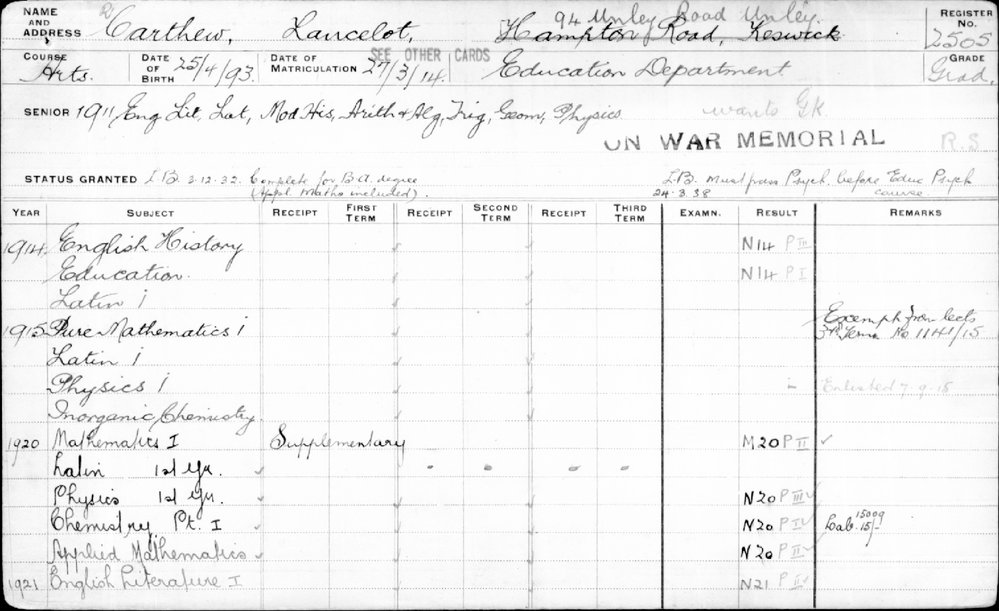 NAME AND ADDRESS Carthew, Lancelot, Hampton Road, Keswick 94 Unley Road Unley. REGISTER No. 2505
COURSE Arts. DATE OF BIRTH 25/4/93. DATE OF MATRICULATION 27/3/14. SEE OTHER CARDS Education Department GRADE Grad.
SENIOR 1911 Eng Lit, Lat, Mod His, Arith & Alg, Trig, Geom, Physics wants GK.
ON WAR MEMORIAL R.S
STATUS GRANTED 2.12.32. Complete for B.A. degree (Appl. Maths included). Must pass Psych. before Educ Psych course. 24.3.38
YEAR SUBJECT RECEIPT FIRST TERM RECEIPT SECOND TERM RECEIPT THIRD TERM EXAMN. RESULT REMARKS
1914. English History N14 P III
Education. N14 P I
Latin i
1915 Pure Mathematics i Exempt from lects 3rd Term No. 1141/15
Latin i
Physics i – Enlisted 7-9-15
Inorganic Chemistry.
1920 Mathematics I Supplementary M20 P II ✓
Latin 1st Yr. ✓
Physics 1st Yr. N20 P III ✓
Chemistry Pt. I N20 P II ✓ Lab 15/- 15009
Applied Mathematics ✓ N20 P II ✓
1921 English Literature I N21 P II ✓